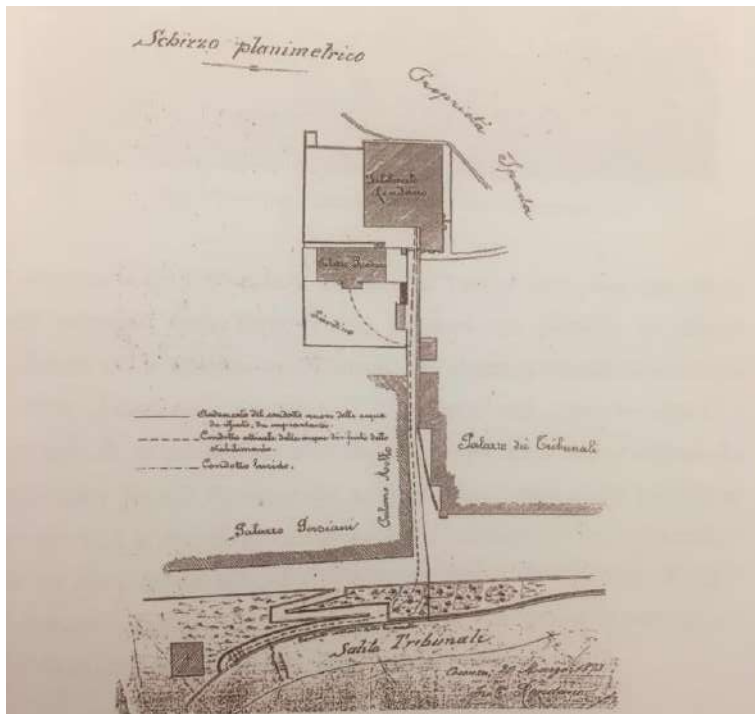 Schizzo planimetrico
Proprietà Spada
Stabilimento
Giardino
Andamento del condotto nuovo delle acque
di rifiuto, da impiantarsi.
Condotto attuale delle acque di rifiuto dello
stabilimento.
Condotto lurido.
Palazzo dei Tribunali
Palazzo
Salita Tribunali
Cosenza, 20